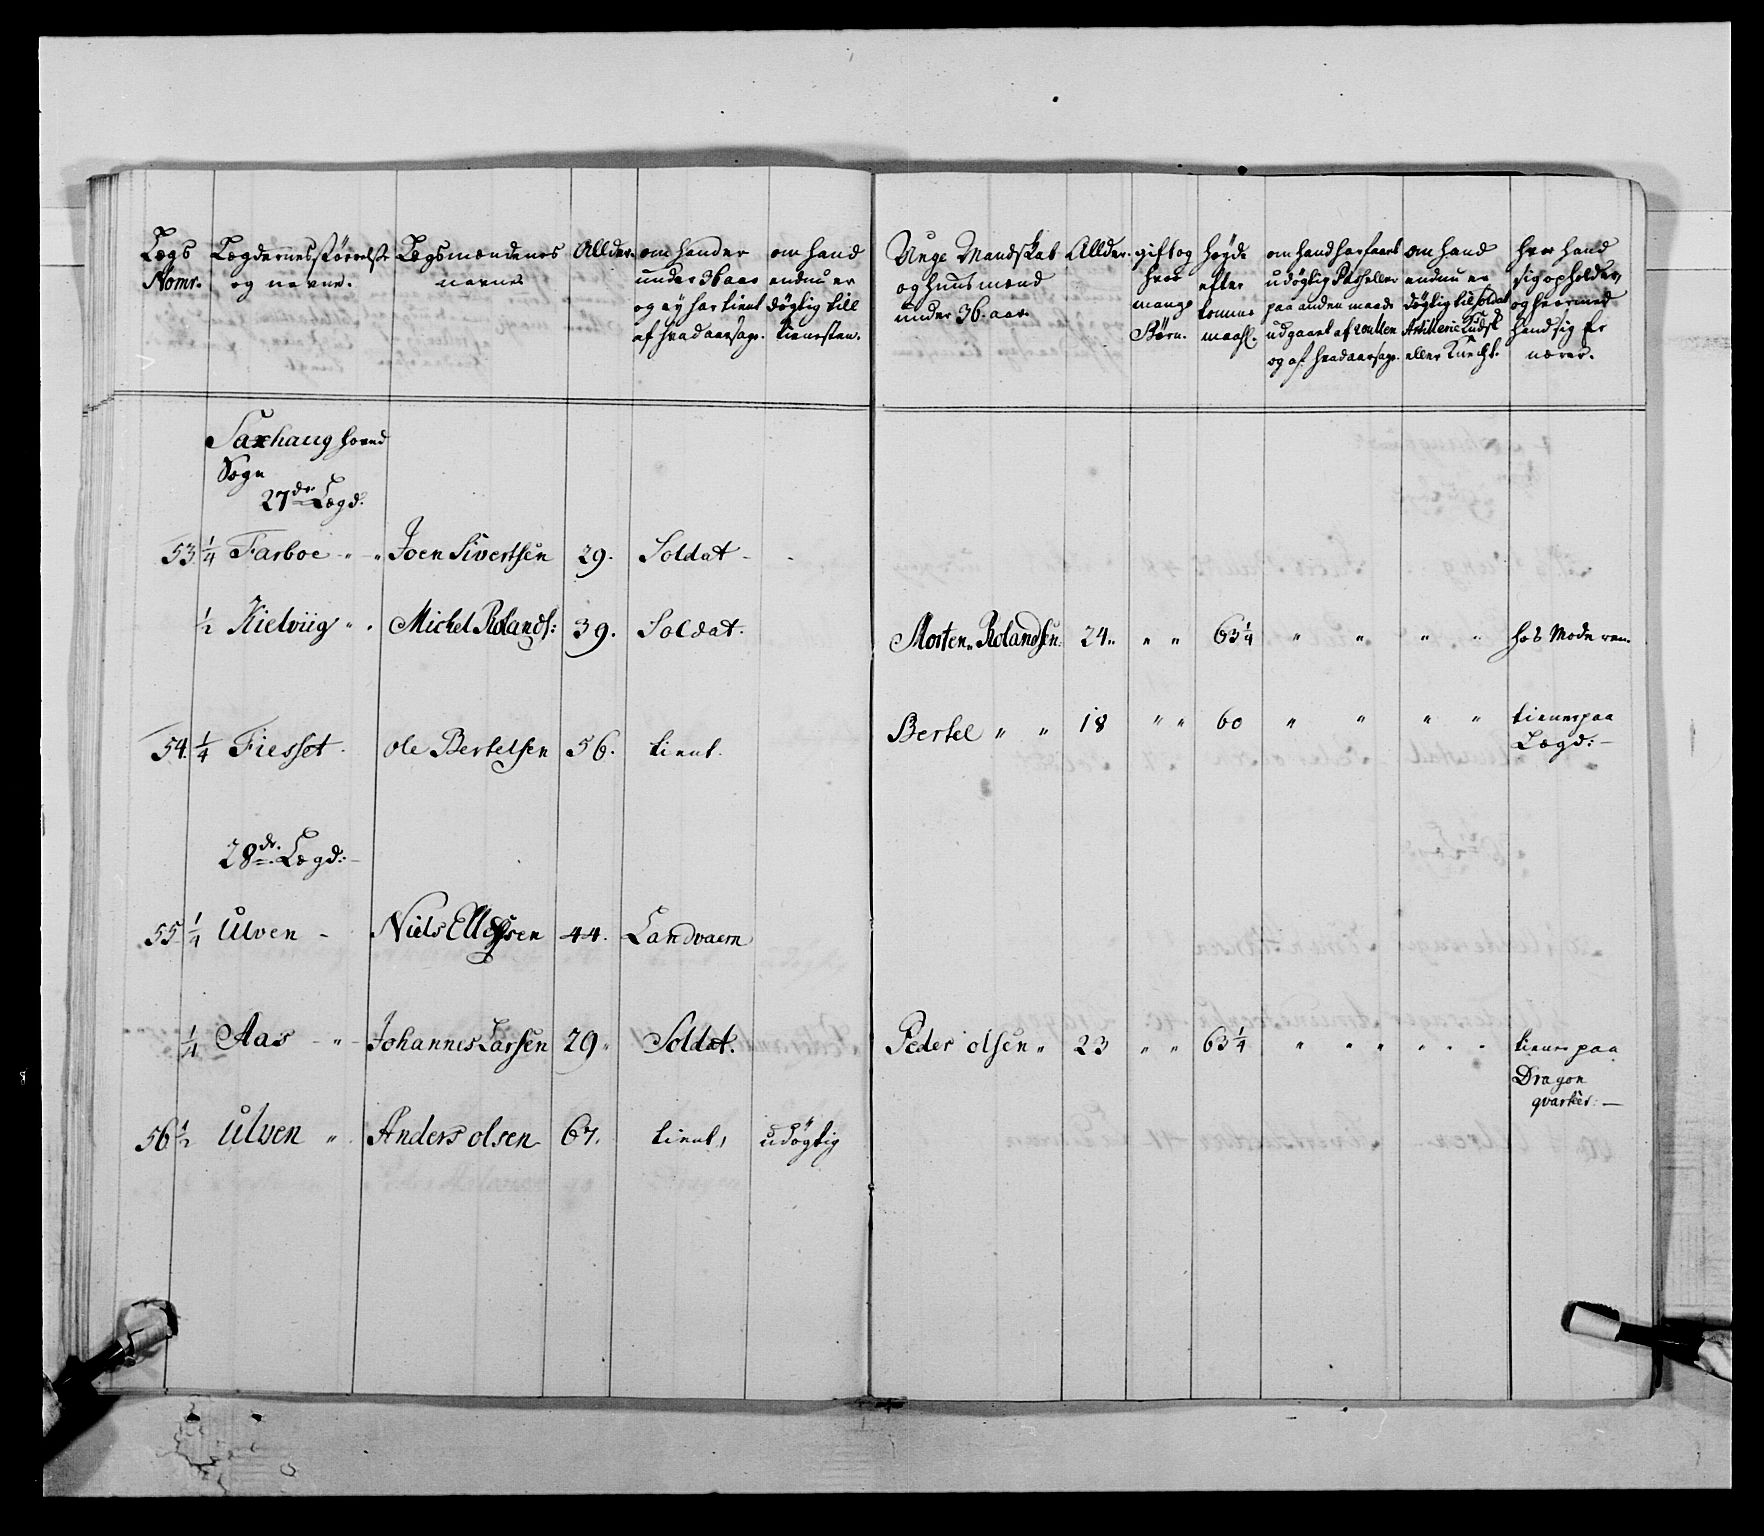 Lægs Nomr.
Lægdernes størrelse og navne.
Lægsmændenes navne
Allder
om hand er under 36 aar og ey har tient af hvad aarsage.
om hand endnu er døgtig till tienesten.
Unge Mandskab og huusmænd under 36. aar.
Allder.
gift og hvor mange Børn.
høyde efter tomme maahl.
om hand har faaet udøgtig Pas heller paa anden maade udgaaet af roullen og af hvad aarsage.
om hand endnu er døgtig til soldat Artillerie Kudsk eller Knecht.
hvor hand sig opholder, og hvormed hand sig Er nærer.
Saxhaug hoved
Sogn
27de Lægd:
53 1/4 Farboe " " Joen Sivertsen 29. Soldat -
1/2 Kielviig " " Michel Rolands: 39. Soldat. Morten Rolandsen 24 " " 63 1/4 " " " " hos Moderen
54. 1/4 Fiesset. ole Bertelsen 56. tient. Bertel " " 18 " " 60 " " " " tiener paa
Lægd: -
28de Lægd: -
55 1/4 Ulven - Niels Ellefsen 44. Landvaern
1/4 Aas " Johannes Larsen 29 " Soldat. Peder olsen " 23 " " 63 1/4 " " " " " " tiener paa
Dragon
qvarter: -
56 1/2 Ulven " Anders olsen 67. tient, udøgtig